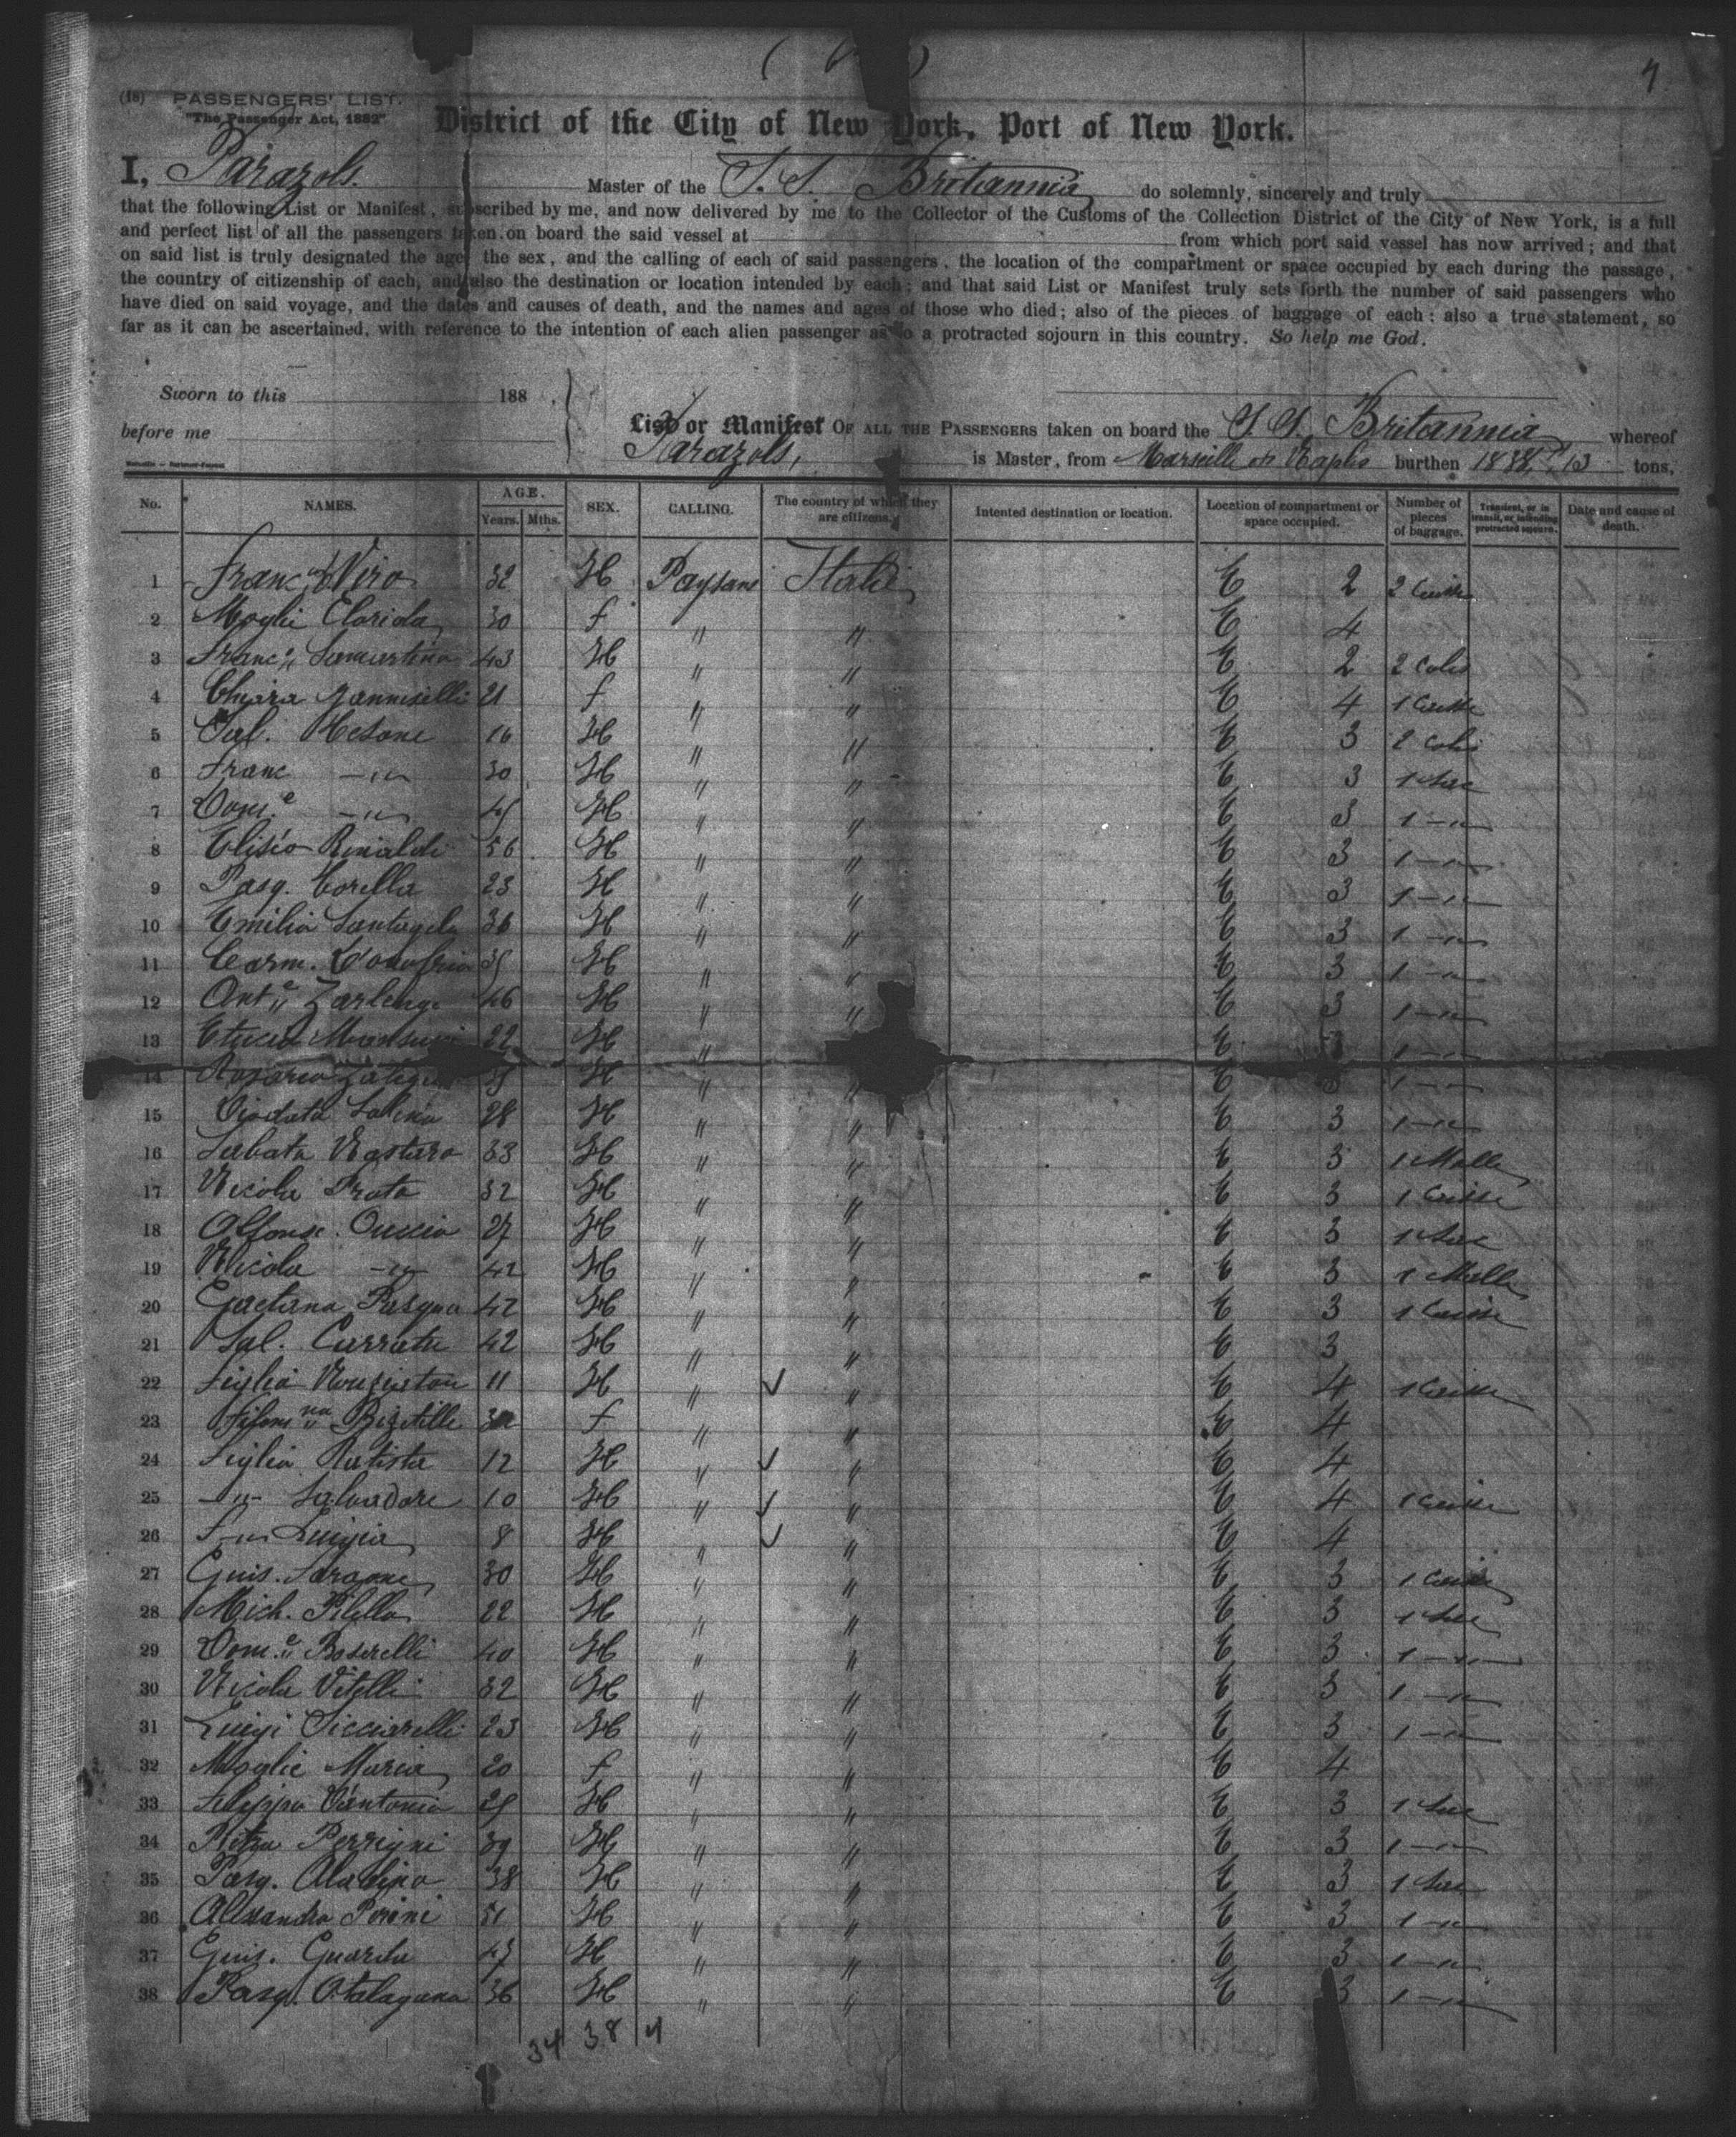 4
(18) PASSENGERS' LIST.
"The Passenger Act, 1882"
District of the City of New York, Port of New York.
I, Parazols. Master of the S. S. Britannia do solemnly, sincerely and truly
that the following List or Manifest, subscribed by me, and now delivered by me to the Collector of the Customs of the Collection District of the City of New York, is a full
and perfect list of all the passengers taken on board the said vessel at from which port said vessel has now arrived; and that
on said list is truly designated the age, the sex, and the calling of each of said passengers, the location of the compartment or space occupied by each during the passage,
the country of citizenship of each, and also the destination or location intended by each; and that said List or Manifest truly sets forth the number of said passengers who
have died on said voyage, and the dates and causes of death, and the names and ages of those who died; also of the pieces of baggage of each; also a true statement, so
far as it can be ascertained, with reference to the intention of each alien passenger as to a protracted sojourn in this country. So help me God.
Sworn to this 188 .
before me
List or Manifest OF ALL THE PASSENGERS taken on board the S. S. Britannia whereof
Parazols, is Master, from Marseille & Naples burthen 1838 T. 13 tons,
No. NAMES. AGE. Years. Mths. SEX. CALLING. The country of which they are citizens. Intented destination or location. Location of compartment or space occupied. Number of pieces of baggage. Transient, or in transit, or intending protracted sojourn. Date and cause of death.
1 Franc Viro 32 H Paysans Italie E 2 2 Caisse
2 Moglie Clorida 30 f " " E 4
3 Franc Samartino 43 H " " E 2 2 Colis
4 Chiara Janniselli 21 f " " E 4 1 Caisse
5 Sal. Nesone 16 H " " E 3 2 Colis
6 Franc -"- 30 H " " E 3 1 Sac
7 Dom.e -"- 45 H " " E 3 1 -"-
8 Elisio Rinaldi 56 H " " E 3 1 -"-
9 Pasq. Corella 23 H " " E 3 1 -"-
10 Emilia Santagela 36 H " " E 3 1 -"-
11 Carm. D'onofrio 35 H " " E 3 1 -"-
12 Ant.e Zarlenga 46 H " " E 3 1 -"-
13 22 H " " E 1 -"-
14 Rosario H " " E 3 1 -"-
15 Diodata Salina 28 H " " E 3 1 -"-
16 Sabata Nastaro 33 H " " E 3 1 Malle
17 Nicola Prata 32 H " " E 3 1 Caisse
18 Alfonse. Cuccia 27 H " " E 3 1 Sac
19 Nicola -"- 42 H " " E 3 1 Malle
20 Gaetana Pasqua 42 H " " E 3 1 Caisse
21 Sal. Carratu 42 H " " E 3
22 Figlia 11 H " " E 4 1 Caisse
23 f " " E 4
24 Figlia Batista 12 H " " E 4
25 -"- Salvadore 10 H " " E 4 1 Caisse
26 -"- Luigia 8 H " " E 4
27 Guis. Saragone 30 H " " E 3 1 Caisse
28 Mich. Pilella 22 H " " E 3 1 Sac
29 Dom.e Boserelli 40 H " " E 3 1 -"-
30 Nicola Vitelli 32 H " " E 3 1 -"-
31 Luigi Sicciarelli 23 H " " E 3 1 -"-
32 Moglie Maria 20 f " " E 4
33 Filippo D'antonio 25 H " " E 3 1 Sac
34 Pietra Perrigni 39 H " " E 3 1 -"-
35 Pasq. Aladino 38 H " " E 3 1 Sac
36 Alessandro Perini 51 H " " E 3 1 -"-
37 Guis. Guarda 47 H " " E 3 1 -"-
38 Pasq. Otalagana 36 H " " E 3 1 -"-
34 38 4